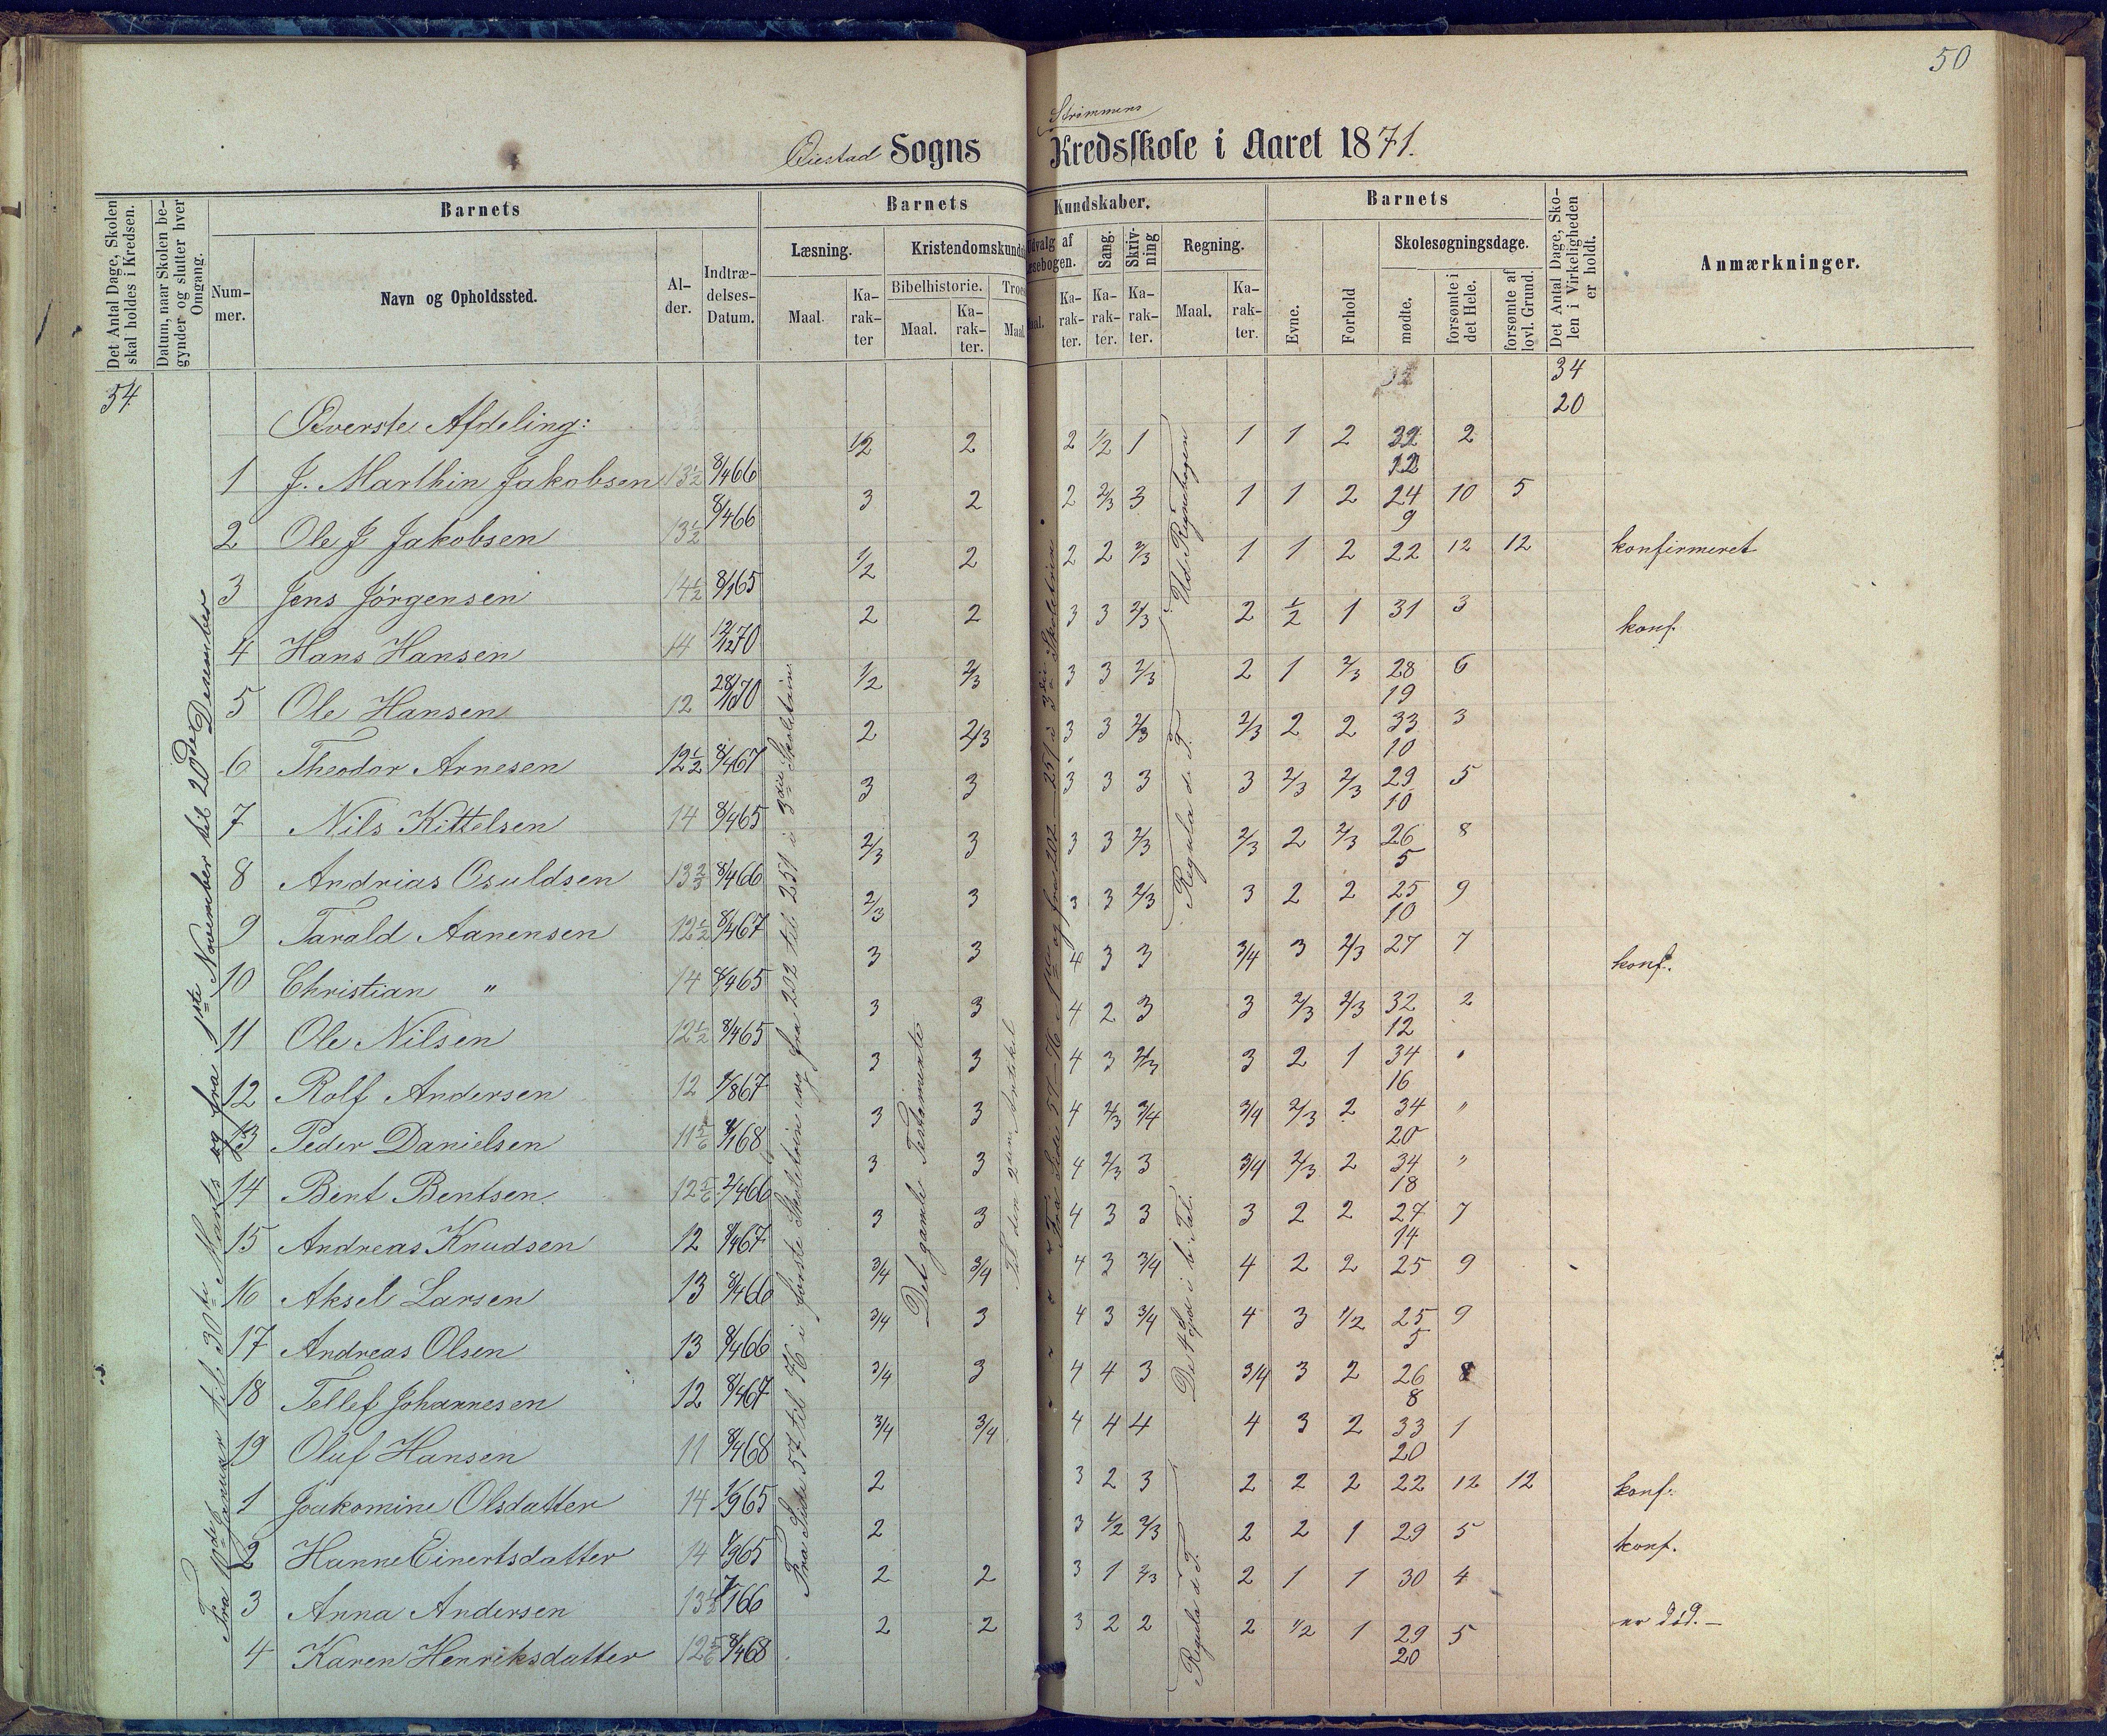 50
Strømmens
Øiestad Sogns Kredsskole i Aaret 1871.
Det Antal Dage, Skolen skal holdes i Kredsen.
Datum, naar Skolen begynder og slutter hver Omgang.
Barnets
Nummer.
Navn og Opholdssted.
Alder.
Indtrædelses-Datum.
Barnets Kundskaber.
Læsning.
Maal.
Karakter
Kristendomskunds
Bibelhistorie.
Maal.
Karakter.
Troes
Maal
Udvalg af Læsebogen.
Maal.
Karakter.
Sang.
Karakter.
Skrivning
Karakter.
Regning.
Maal.
Karakter.
Barnets
Evne.
Forhold
Skolesøgningsdage.
mødte.
forsømte i det Hele.
forsømte af lovl. Grund.
Det Antal Dage, Skolen i Virkeligheden er holdt.
Anmærkninger.
54
34
20
Øverste Afdeling:
1 J. Marthin Jakobsen 13½ 8/4 66 1/2 2 2 1/2 1 1 1 2 32 2
12
2 Ole J Jakobsen 13½ 8/4 66 3 2 2 2/3 3 1 1 2 24 10 5
9
3 Jens Jörgensen 14½ 8/1 65 1/2 2 2 2 2/3 1 1 2 22 12 12 konfirmeret
4 Hans Hansen 14 12/12 70 2 2 3 3 2/3 2 1/2 1 31 3 konf.
5 Ole Hansen 12 28/1 70 1/2 2/3 3 3 2/3 2 1 2/3 28 6
19
6 Theodor Arnesen 12½ 8/4 67 2 2/3 3 3 2/3 2/3 2 2 33 3
10
7 Nils Kittelsen 14 8/4 65 3 3 3 3 3 3 2/3 2/3 29 5
10
8 Andrias Osuldsen 13⅔ 8/4 66 2/3 3 3 3 2/3 2/3 2 2/3 26 8
5
9 Tarald Aanensen 12½ 8/4 67 2/3 3 3 3 2/3 3 2 2 25 9
10
10 Christian " 14 8/4 65 3 3 4 3 3 3/4 3 2/3 27 7 konf.
11 Ole Nilsen 12½ 8/4 65 3 3 4 2 3 3 2/3 2/3 32 2
12
12 Rolf Andersen 12 1/8 67 3 3 4 3 2/3 3 2 1 34 "
16
13 Peder Danielsen 11 5/6 8/1 68 3 3 4 2/3 3/4 3/4 2/3 2 34 "
20
14 Bent Bentsen 12 5/6 2/4 66 3 3 4 2/3 3 3/4 2/3 2 34 "
18
15 Andreas Knudsen 12 8/4 67 3 3 4 3 3 3 2 2 27 7
14
16 Aksel Larsen 13 8/4 66 3/4 3/4 4 3 3/4 4 2 2 25 9
17 Andreas Olsen 13 8/4 66 3/4 3 4 3 3/4 4 3 1/2 25 9
5
18 Tellef Johannesen 12 8/4 67 3/4 3 4 4 3 3/4 3 2 26 8
8
19 Oluf Hansen 11 8/4 68 3/4 3/4 4 4 4 4 3 2 33 1
20
1 Joakomine Olsdatter 14 1/9 65 2 3 2 3 2 2 2 22 12 12 konf.
2 Hanne Einertsdatter 14 1/9 65 2 3 1/2 2/3 2 2 1 29 5 konf.
3 Anna Andersen 13½ 7/1 66 2 2 3 1 2/3 2 1 1 30 4
4 Karen Henriksdatter 12 5/6 8/4 68 2 2 3 2 2 2 1/2 1 29 5 er død. —
20
Fra 10de Januar til 30te Marts og fra 1ste November til 20de Desember
Fra Side 57 til 76 i første Skoletrin og fra 202 til 251 i 3die Skoletrin
Det gamle Testamente
Til den 2den Artikel
Fra Side 57-76 i 1ste og fra 202-251 i 3die Skoletrin
Ud Regnebogen
Regula de T.
De 4 Spd i b. Tal.
Regula d T.